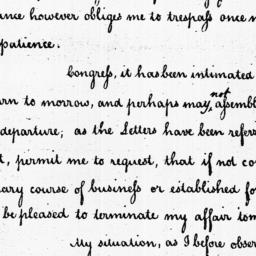 ance however obliges me to trespass once m
patience.
Congress, it has been intimated
urn to morrow, and perhaps may not assembl
departure; as the Letters have been referr
t, permit me to request, that if not co
ary course of business or established fo
be pleased to terminate my affair tom
My situation, as I before obser